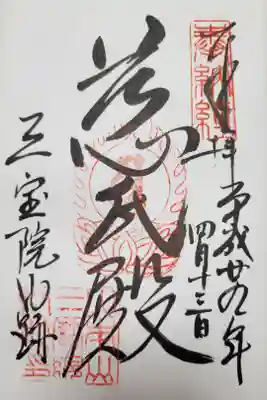 奉拝 平成廿九年
四月十三日
慈氏殿
三宝院門跡